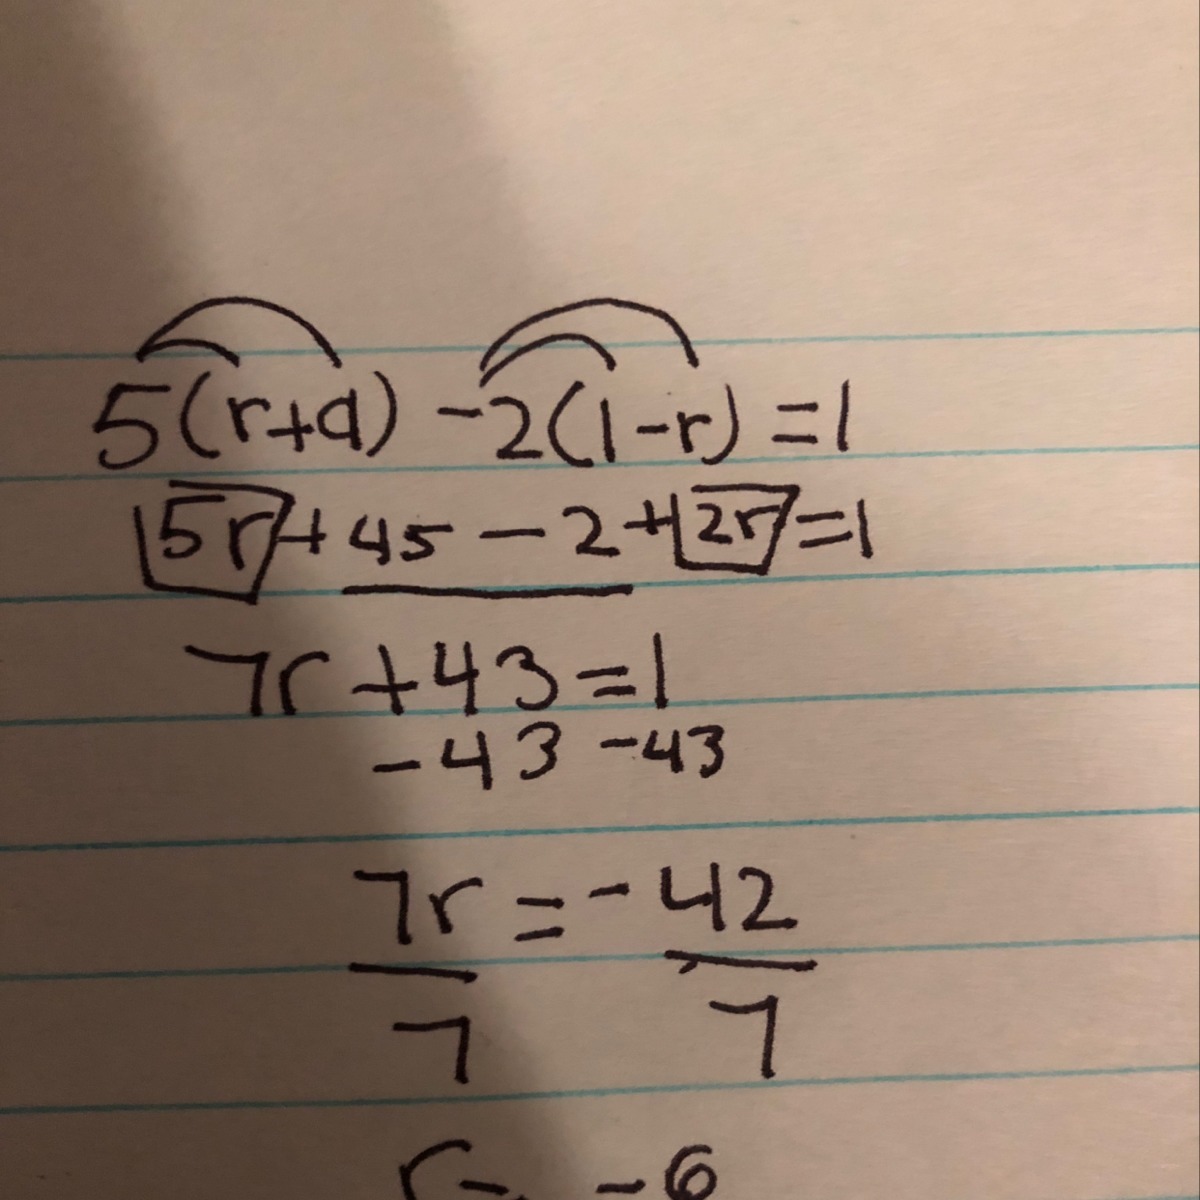 5(r+9) -2(1-r) =1
5r + 45 - 2 + 2r = 1
7r + 43 = 1
- 43 -43
7r = - 42
7 7
r= -6